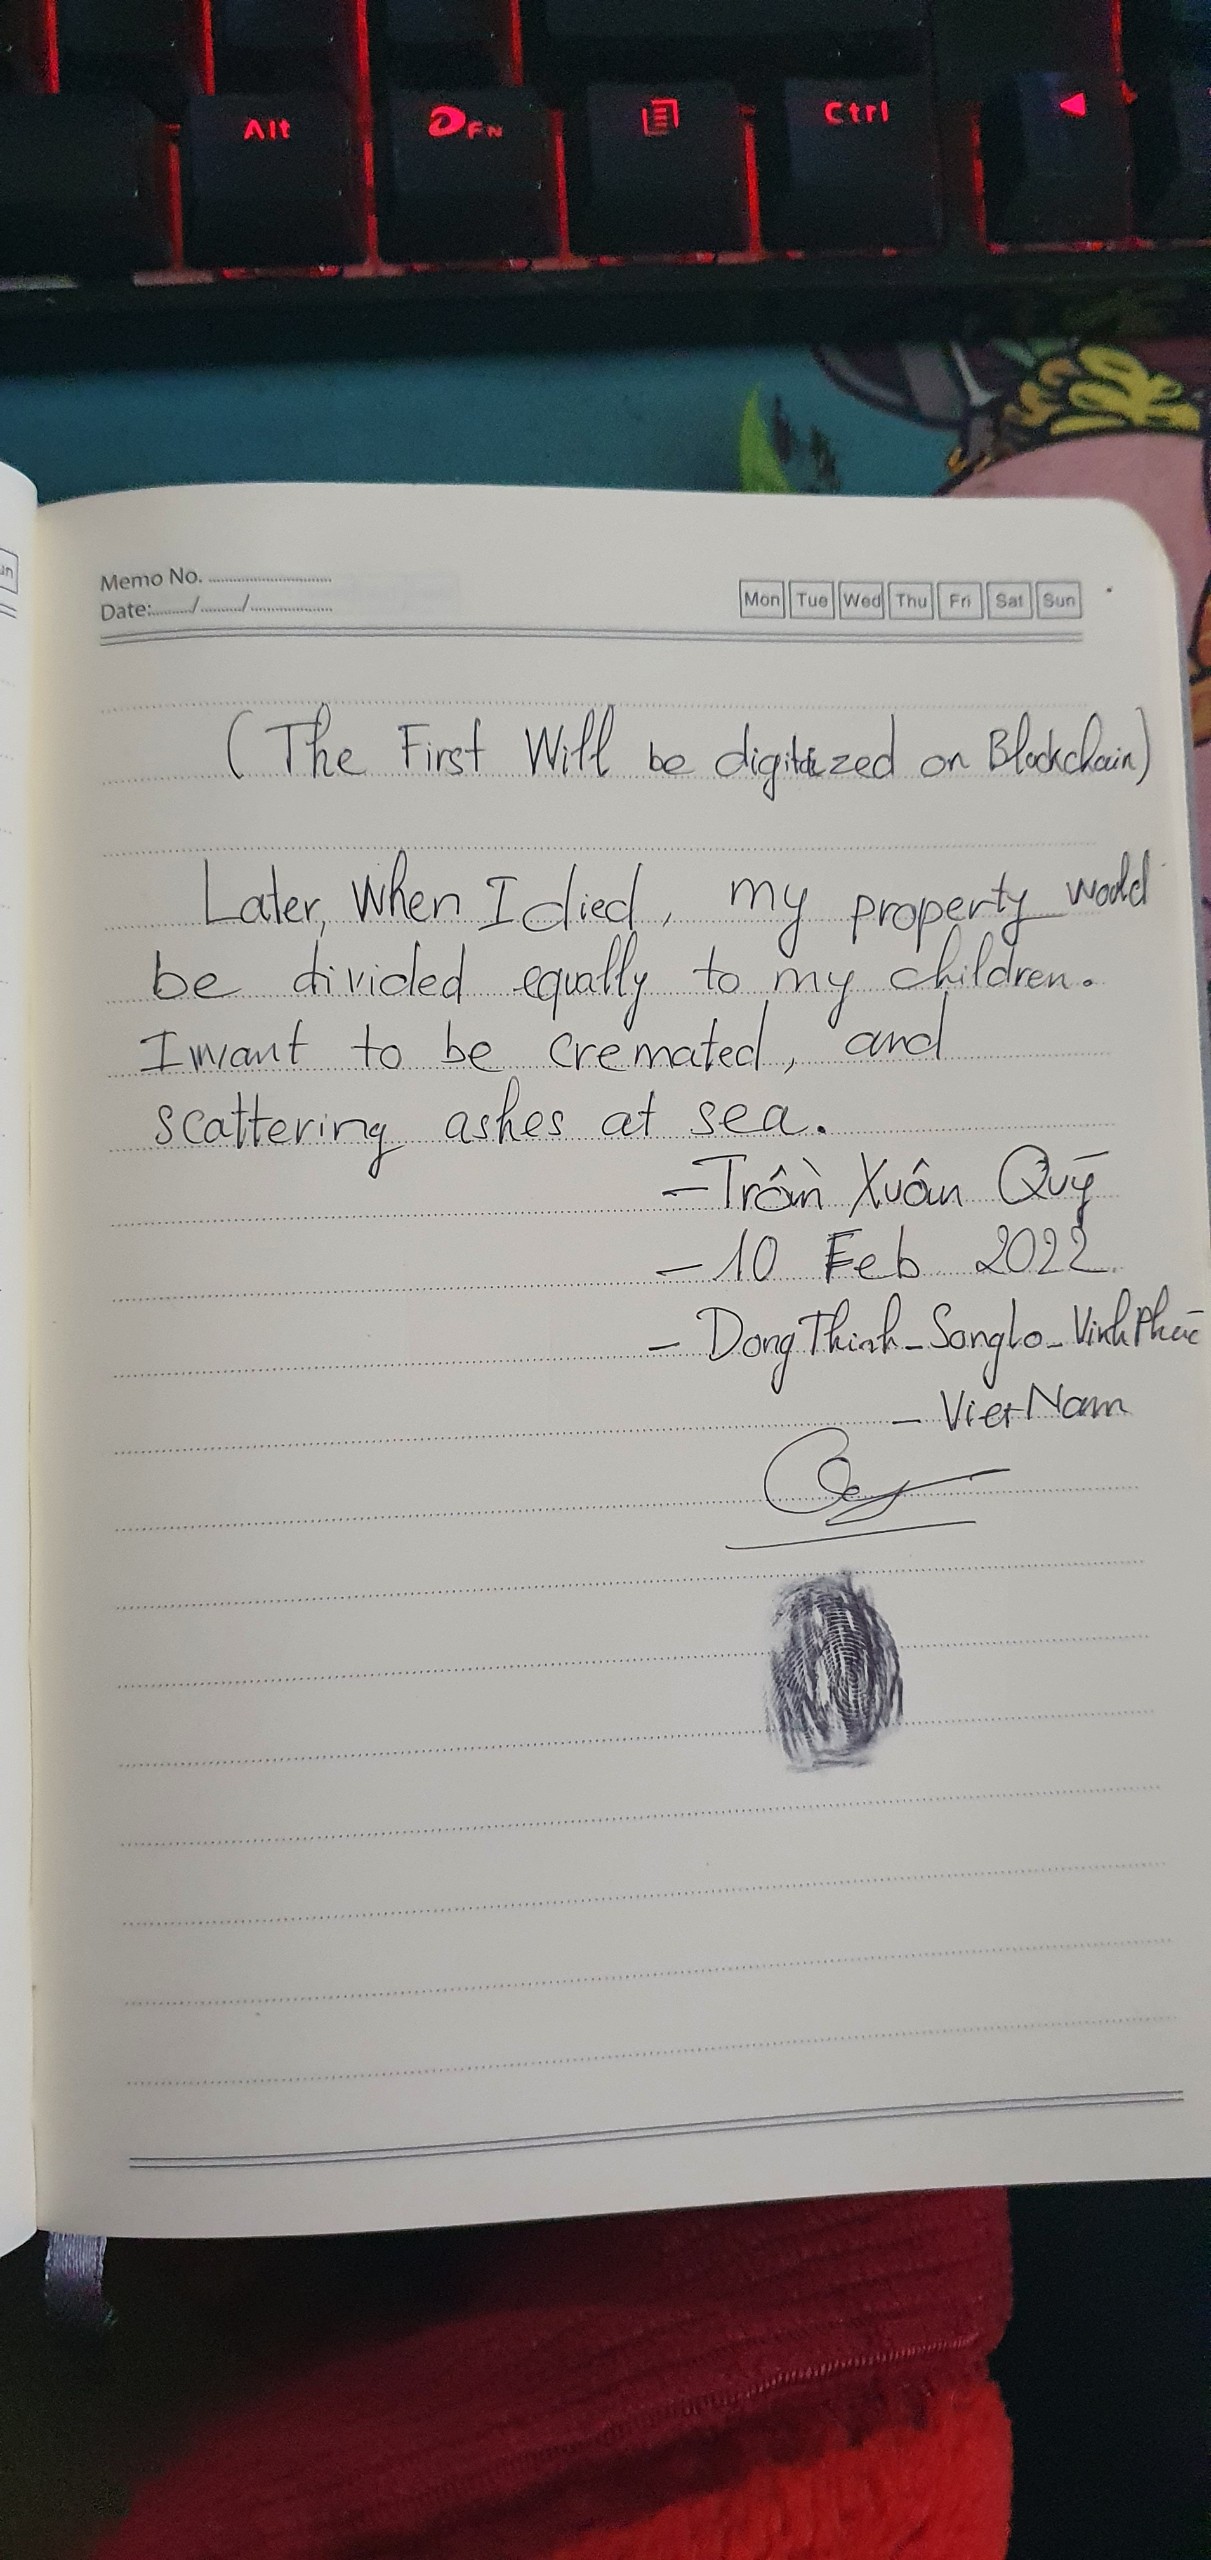 Alt
FN
Ctrl
un
Memo No. ...............
Date:......./......./...............
Mon Tue Wed Thu Fri Sat Sun
(The First Will be digitized on Blockchain)
Later, When I died, my property would
be divided equally to my children.
I want to be cremated, and
scattering ashes at sea.
– Trần Xuân Quý
– 10 Feb 2022
– Dong Thinh – Songlo – Vinh Phúc
– Viet Nam